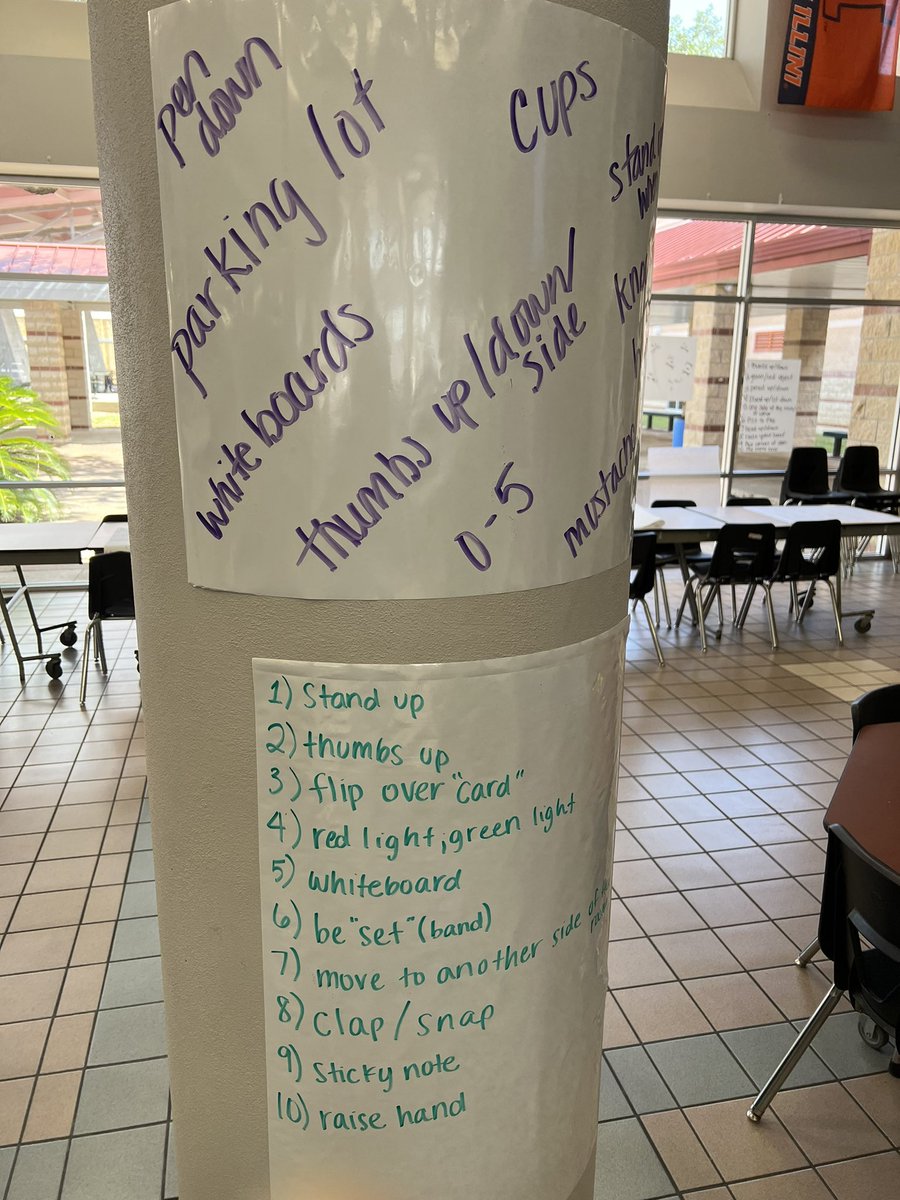 pen
down
parking lot
cups
stand
whiteboards
thumbs up/down/
side
0-5
1) Stand up
2) thumbs up
3) flip over "card"
4) red light, green light
5) whiteboard
6) be "set" (band)
7) move to another side of
8) clap/snap
9) sticky note
10) raise hand
ILLINI